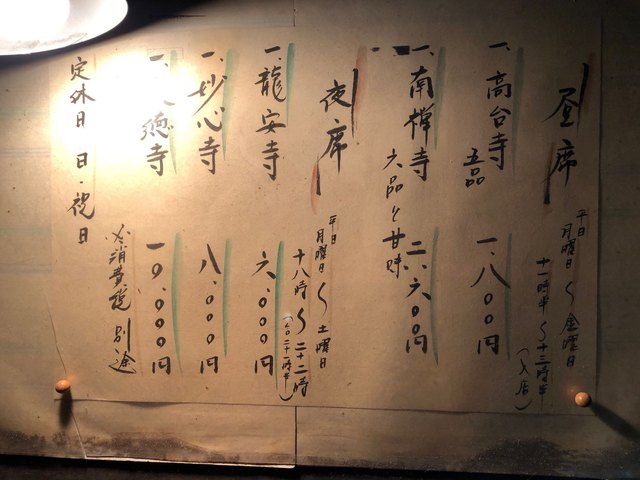 昼席
平日
月曜日〜金曜日
十一時半〜十三時半
(入店)
一、高台寺 五品 一、八〇〇円
一、南禅寺 六品と甘味 二、六〇〇円
夜席
平日
月曜日〜土曜日
十八時〜二十二時
一、龍安寺 六、〇〇〇円
一、妙心寺 八、〇〇〇円
一、徳寺 一〇、〇〇〇円
定休日 日・祝日
消費税 別途